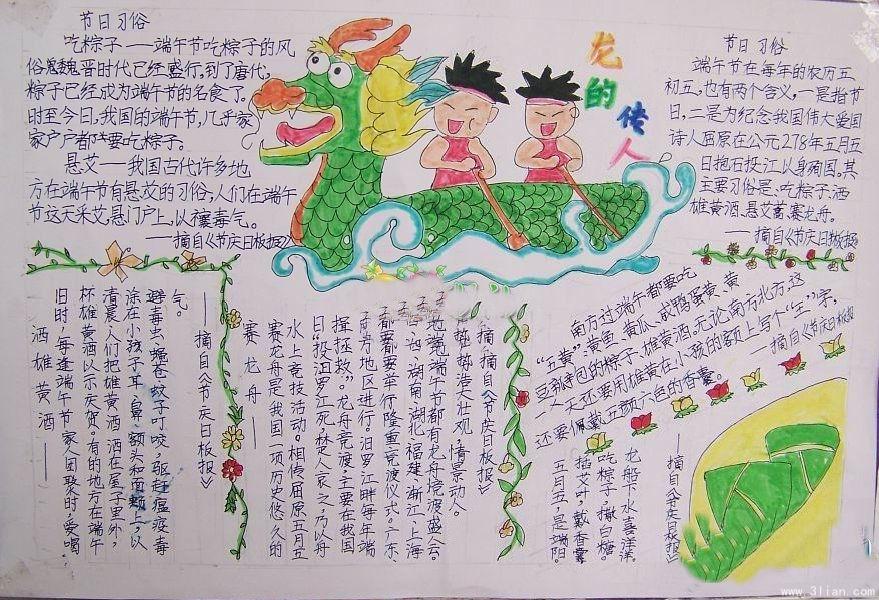 节日习俗
吃粽子——端午节吃粽子的风
俗魏晋时代已经盛行,到了唐代,
粽子已经成为端午节的名食了。
时至今日,我国的端午节,几乎家
家户户都要吃粽子。
悬艾——我国古代许多地
方在端午节有悬艾的习俗,人们在端午
节这天采艾悬门户上,以禳毒气。
——摘自《节庆日板报》
龙的传人
节日习俗
端午节在每年的农历五
初五,也有两个含义,一是指节
日,二是为纪念我国伟大爱国
诗人屈原在公元278年五月五
日抱石投江以身殉国,其
主要习俗是、吃粽子、洒
雄黄酒、悬艾蒿、赛龙舟。
——摘自《节庆日板报》
洒雄黄酒——
旧时,每逢端午节家人团聚时,爱喝
杯雄黄酒以示庆贺。有的地方在端午
清晨,人们把雄黄酒洒在屋子里外,
涂在小孩子耳、鼻、额头和面颊上,以
避毒虫、蝇苍蚊子叮咬,驱赶瘟疫毒
气。
——摘自《节庆日板报》
赛龙舟——
赛龙舟是我国一项历史悠久的
水上竞技活动。相传屈原五月五
日“投汨罗江死,楚人哀之,乃以舟
揖拯救。”龙舟竞渡主要在我国
南方地区进行。汨罗江畔每年端
都要举行隆重竞渡仪式。广东、
湖南、湖北、福建、浙江、上海
地端午节都有龙舟竞渡盛会。
浩大壮观,情景动人。
摘自《节庆日板报》
南方过端午都要吃
“五黄”:黄鱼、黄瓜、咸鸭蛋黄、黄
豆瓣包的粽子、雄黄酒。无论南方北方,这
一天还要用雄黄在小孩的额上写个“王”字,
还要佩戴五颜六色的香囊。
——摘自《节庆日板报
五月五,是端阳。
插艾叶,戴香囊
吃粽子,撒白糖。
龙船下水喜洋洋。
——摘自《节庆日板报》
www.3lian.com